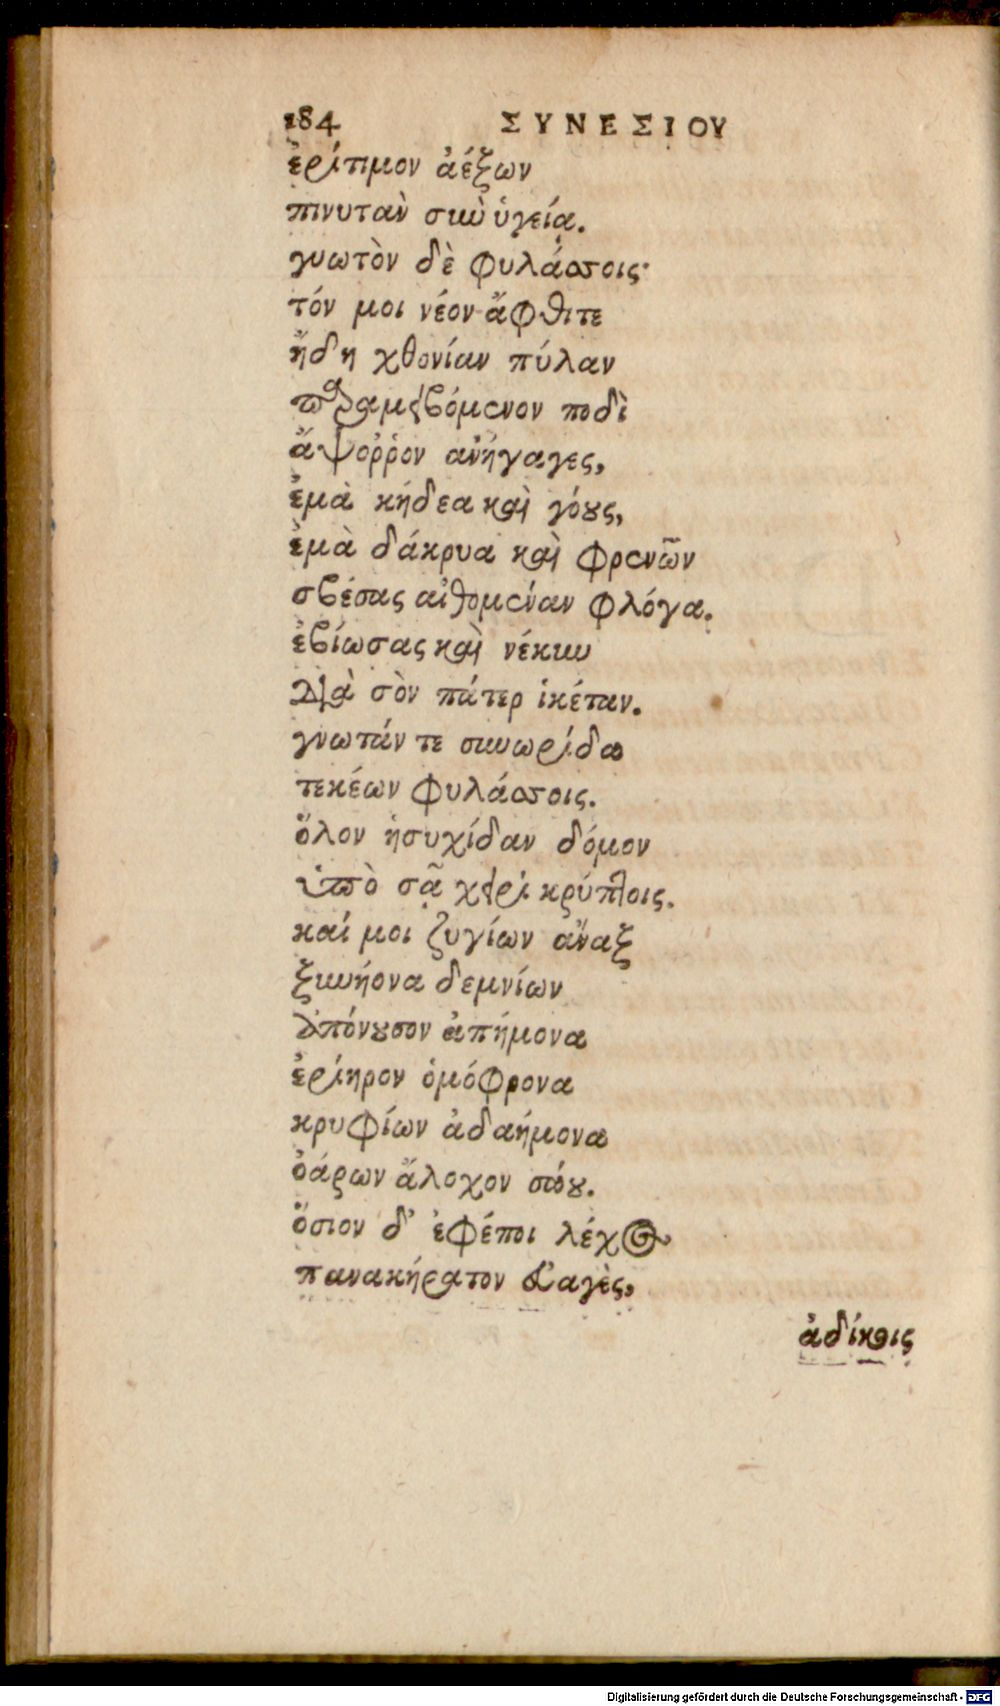 184 ΣΥΝΕΣΙΟΥ
ἐρίτιμον ἀέξων
πινυτὰν σὺν ὑγείᾳ.
γνωτὸν δὲ φυλάσσοις·
τόν μοι νέον ἄφθιτε
ἤδη χθονίαν πύλαν
παραμειβόμενον ποδὶ
ἄψοῤῥον ἀνήγαγες,
ἐμὰ κήδεα καὶ γόους,
ἐμὰ δάκρυα καὶ φρενῶν
σβέσας αἰθομέναν φλόγα.
ἐβίωσας καὶ νέκυν
διὰ σὸν πάτερ ἱκέταν.
γνωτάν τε συνωρίδα
τεκέων φυλάσσοις.
ὅλον ἡσυχίδαν δόμον
ὑπὸ σᾷ χειρὶ κρύπτοις.
καί μοι ζυγίων ἄναξ
ξυνήονα δεμνίων
ἀπόνουσον ἀπήμονα
ἐρίηρον ὁμόφρονα
κρυφίων ἀδαήμονα
ὀάρων ἄλοχον σάου.
ὅσιον δ᾽ ἐφέποι λέχος
πανακήρατον εὐαγὲς,
ἀδίκοις
Digitalisierung gefördert durch die Deutsche Forschungsgemeinschaft - DFG